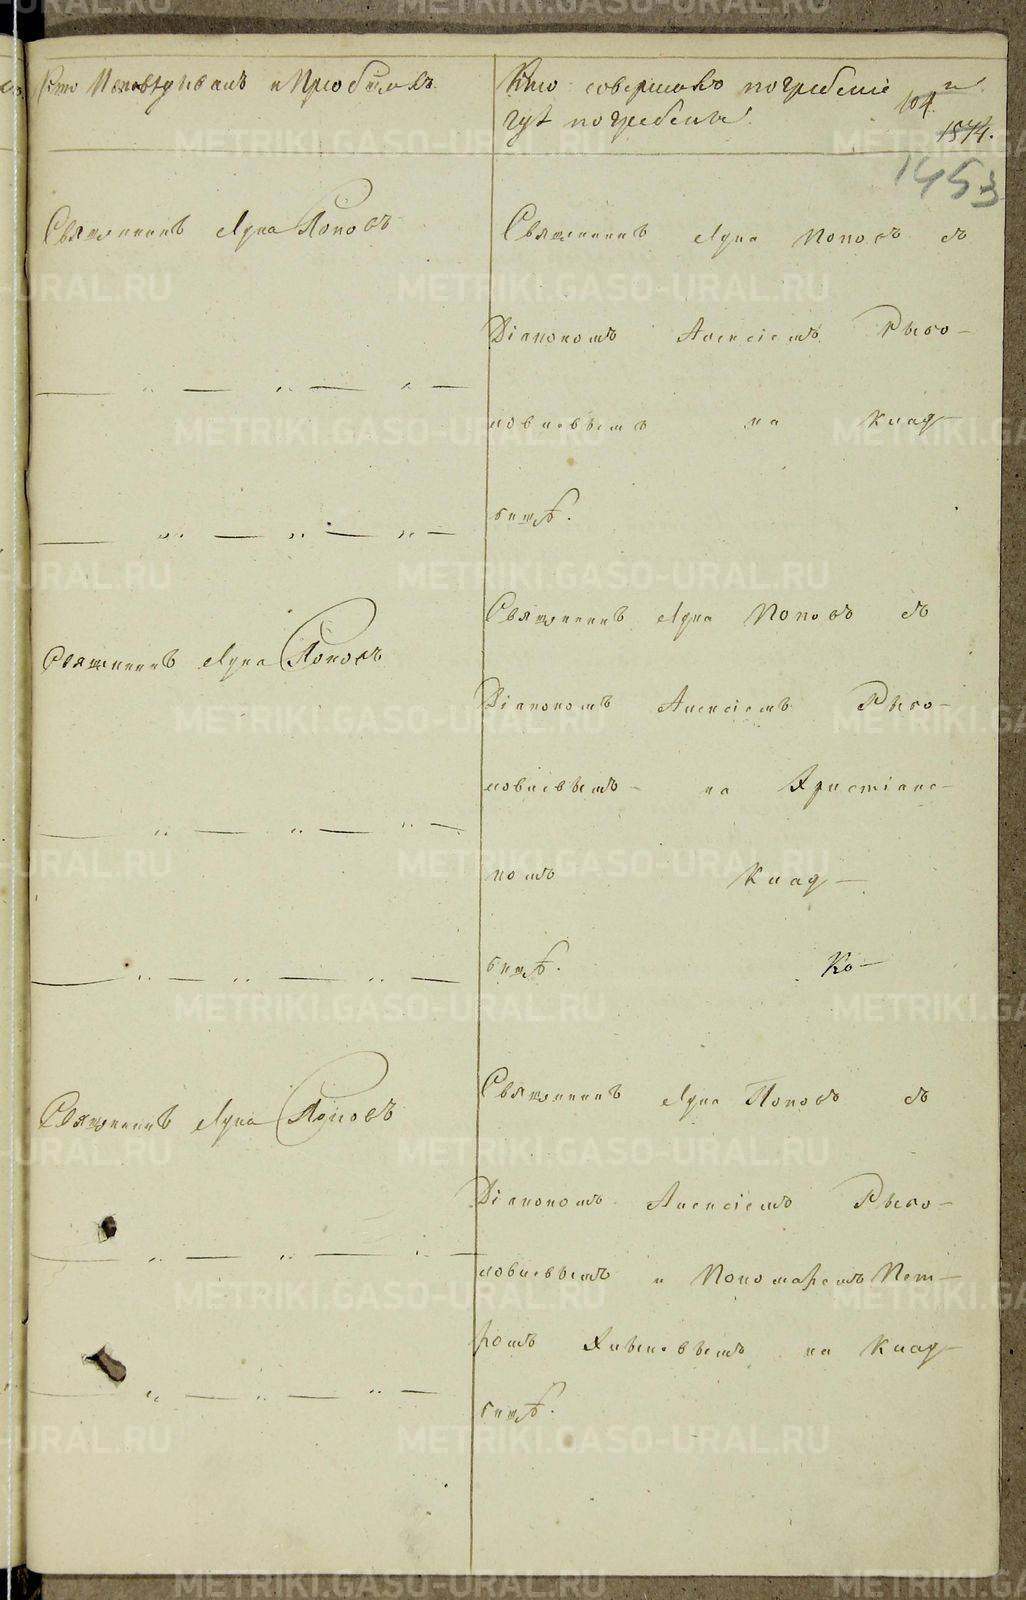 Кто Исповѣдывалъ и Пріобщалъ.
Кто совершалъ погребеніе и
гдѣ погребены.
104.
1574.
1453
Священникъ Лука Поповъ
Священникъ Лука Поповъ съ
Діакономъ Алексіемъ Рыбо-
— „ — „ — „ —
ловлевымъ на Клад-
бищѣ.
— „ — „ — „ —
Священникъ Лука Поповъ съ
Священникъ Лука Поповъ
Діакономъ Алексіемъ Рыбо-
ловлевымъ на Христіанс-
— „ — „ — „ —
комъ Клад-
бищѣ. Ко-
— „ — „ — „ —
Священникъ Лука Поповъ съ
Священникъ Лука Поповъ
Діакономъ Алексіемъ Рыбо-
— „ — „ — „ —
ловлевымъ и Пономаремъ Пет-
ромъ на Клад-
— „ — „ — „ —
бищѣ.
METRIKI.GASO-URAL.RU